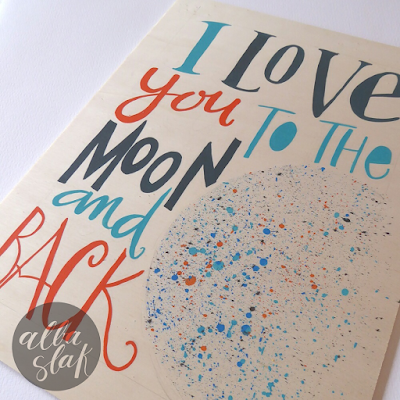 I LOVE
you TO THE
MOON
and
BACK
alla
slak